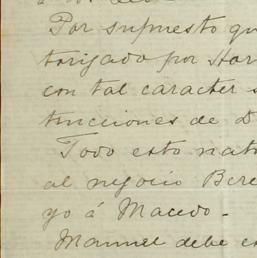 Por supuesto qu
torizado por Har
con tal caracter s
tinciones de D
Todo esto natu
al negocio Bere
yo á Macedo.
Manuel debe es